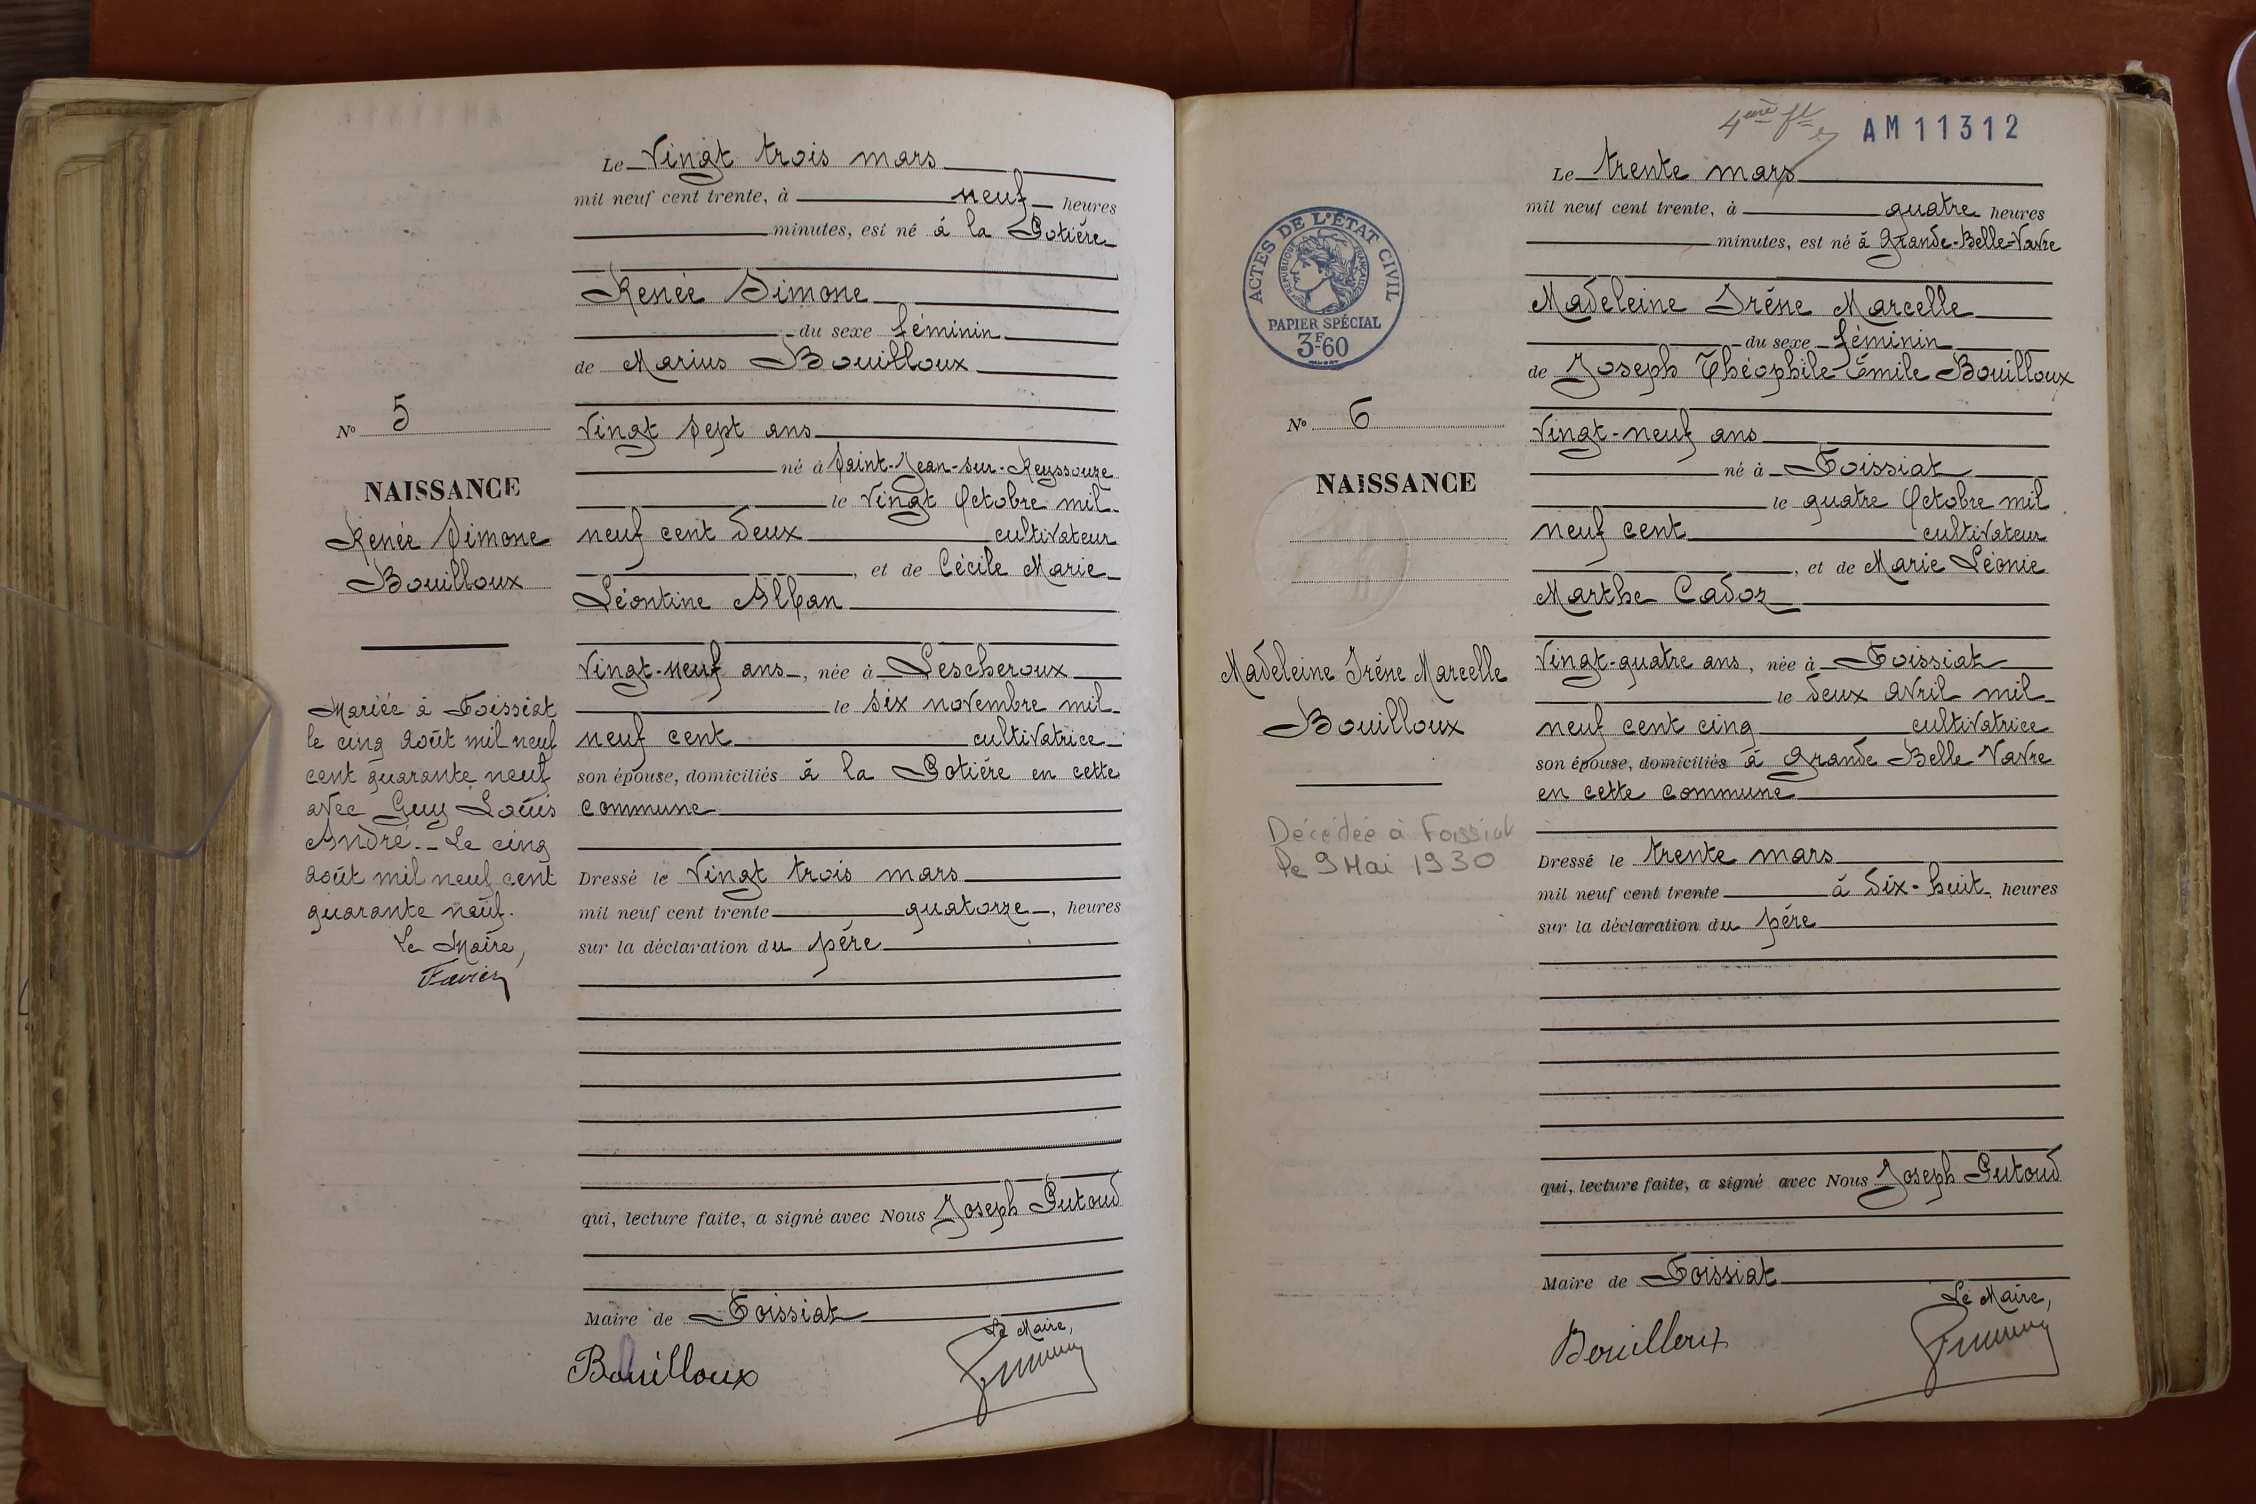 Le Vingt trois mars
mil neuf cent trente, à neuf heures
minutes, est né à la Potière
Renée Simone
du sexe féminin
de Marius Bouilloux
Vingt sept ans
né à Saint-Jean-sur-Reyssouze
le Vingt Octobre mil
neuf cent deux cultivateur
, et de Cécile Marie
Léontine Alban
Vingt-neuf ans, née à Lescheroux
le six novembre mil
neuf cent cultivatrice
son épouse, domiciliés à la Potière en cette
commune
Dressé le Vingt trois mars
mil neuf cent trente quatorze, heures
sur la déclaration du père
qui, lecture faite, a signé avec Nous Joseph Putoud
Maire de Foissiat
Le Maire,
Bouilloux
No 5
NAISSANCE
Renée Simone
Bouilloux
Mariée à Foissiat
le cinq août mil neuf
cent quarante neuf
avec Guy Louis
André. - Le cinq
août mil neuf cent
quarante neuf.
Le Maire,
Favier
AM11312
Le trente mars
mil neuf cent trente, à quatre heures
minutes, est né à Grande-Belle-Vavre
Madeleine Irène Marcelle
du sexe féminin
de Joseph Théophile Émile Bouilloux
Vingt-neuf ans
né à Foissiat
le quatre Octobre mil
neuf cent cultivateur
, et de Marie Léonie
Marthe Cadoz
Vingt-quatre ans, née à Foissiat
le deux avril mil
neuf cent cinq cultivatrice
son épouse, domiciliés à Grande Belle Vavre
en cette commune
Dressé le trente mars
mil neuf cent trente à dix-huit heures
sur la déclaration du père
qui, lecture faite, a signé avec Nous Joseph Putoud
Maire de Foissiat
Le Maire,
Bouilloux
ACTES DE L'ÉTAT CIVIL
RÉPUBLIQUE FRANÇAISE
PAPIER SPÉCIAL
3F60
No 6
NAISSANCE
Madeleine Irène Marcelle
Bouilloux
Décédée à Foissiat
le 9 Mai 1930